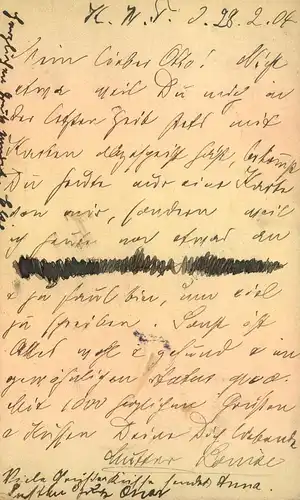 28.2.04
Mein lieber Otto! Nicht
etwa weil Du mich in
der letzten Zeit stets mit
Karten abgespeist hast, bekommst
Du heute nur eine Karte
von mir, sondern weil
ich heute nur etwas an
& zu faul bin, um viel
zu schreiben. Sonst ist
Alles wohl & gesund & im
gewöhnlichen Status quo.
Mit 1000 herzlichen Grüßen
& Küssen Deine Dich liebende
Mutter Louise
Viele Grüße & Küsse sendet Anna